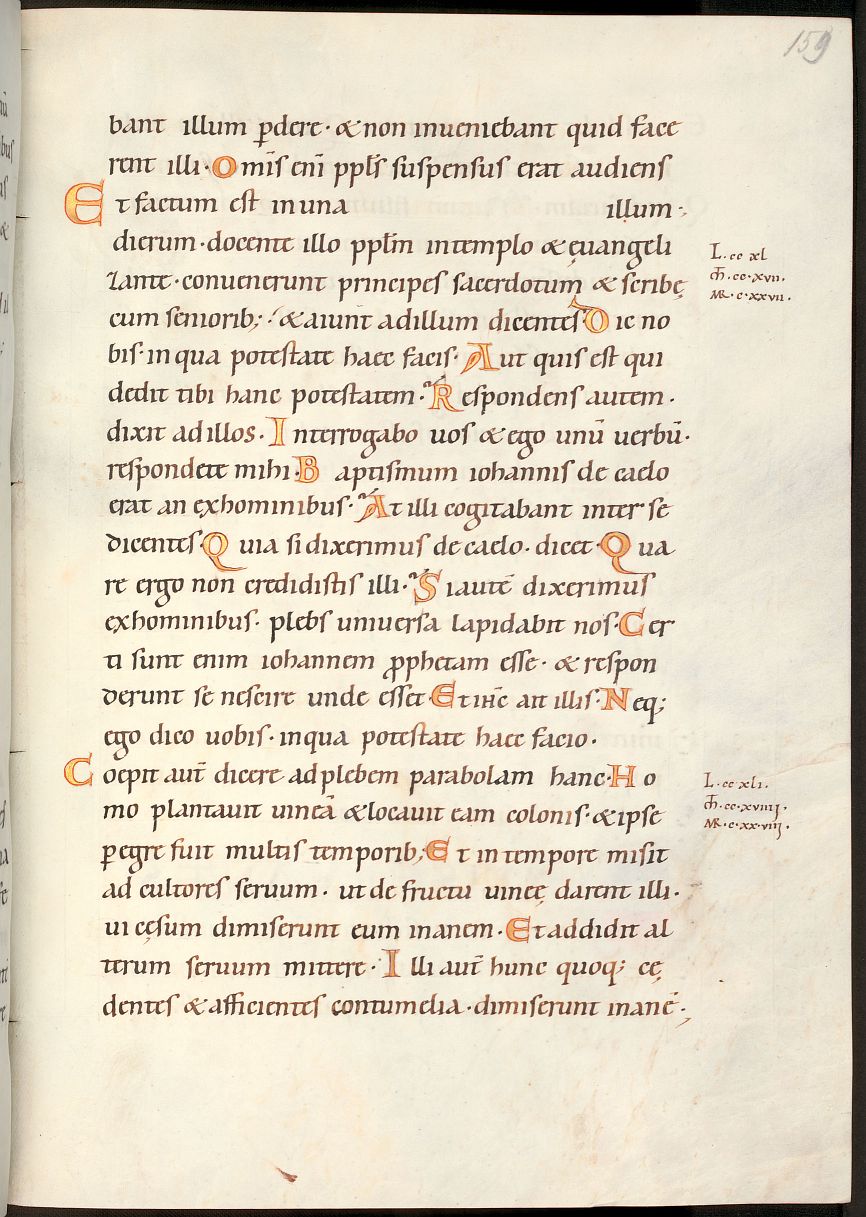 159
bant illum ꝑdere · & non inueniebant quid face
rent illi · Omīs eni͞ ppl̄s suspensus erat audiens
Et factum est in una illum ·,
dierum · docente illo ppl̄m in templo & ęuangeli
zante · conuenerunt principes sacerdotum & scribę
cum seniorib; · & aiunt ad illum dicentes · Dic no
bis · in qua potestate haec facis · Aut quis est qui
dedit tibi hanc potestatem · Respondens autem ·
dixit ad illos · Interrogabo uos & ego unū uerbū ·
respondete mihi · Baptismum iohannis de caelo
erat an ex hominibus · At illi cogitabant inter se
dicentes · Quia si dixerimus de caelo · dicet · Qua
re ergo non credidistis illi · Si autē dixerimus
ex hominibus · plebs uniuersa lapidabit nos · Cer
ti sunt enim iohannem ꝓphetam esse · & respon
derunt se nescire unde esset · Et ih̄c ait illis · Neq;
ego dico uobis · in qua potestate haec facio ·
Coepit aut̄ dicere ad plebem parabolam hanc · Ho
mo plantauit uineā & locauit eam colonis · & ipse
ꝑegre fuit multis temporib; Et in tempore misit
ad cultores seruum · ut de fructu uineę darent illi ·
ui cęsum dimiserunt eum inanem · Et addidit al
terum seruum mittere · Illi aut̄ hunc quoq; cę
dentes & afficientes contumelia · dimiserunt inanē ·,
L · cc xl
m̄ · cc · xvii ·
MR · c · xxvii ·
L · cc xli ·
m̄ · cc · xviiij ·
MR · c · xx · viiij ·